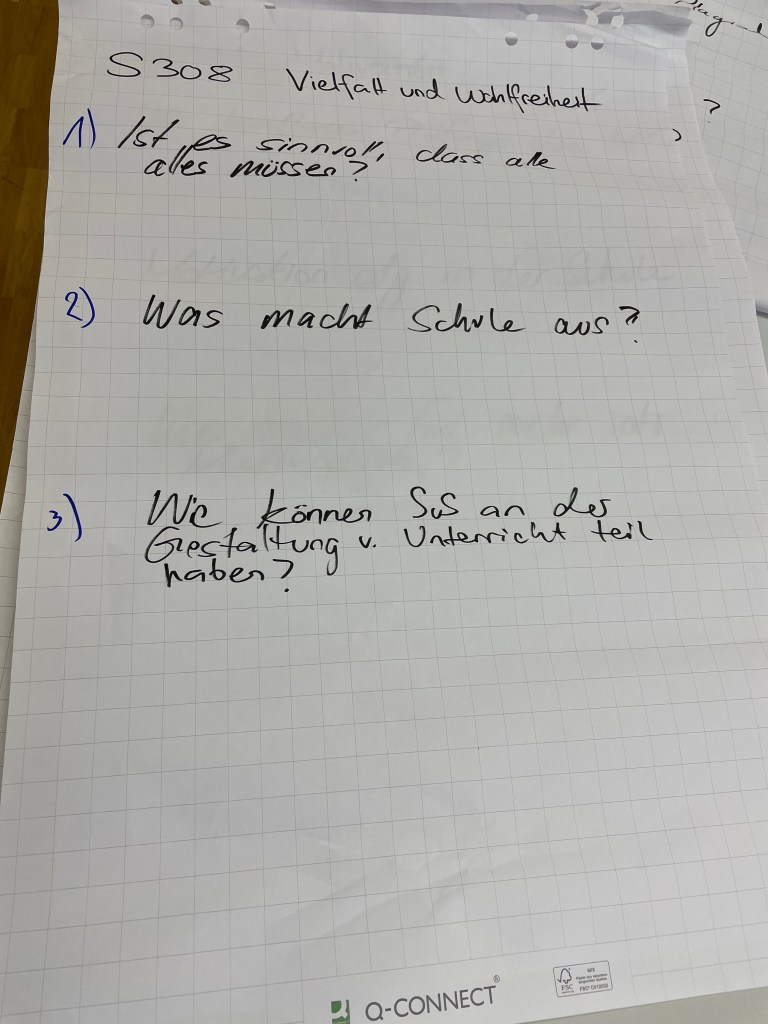 S308 Vielfalt und Wahlfreiheit
1) Ist es sinnvoll, dass alle
alles müssen?
2) Was macht Schule aus?
3) Wie können SuS an der
Gestaltung v. Unterricht teil
haben?
?
Q-CONNECT®
FSC